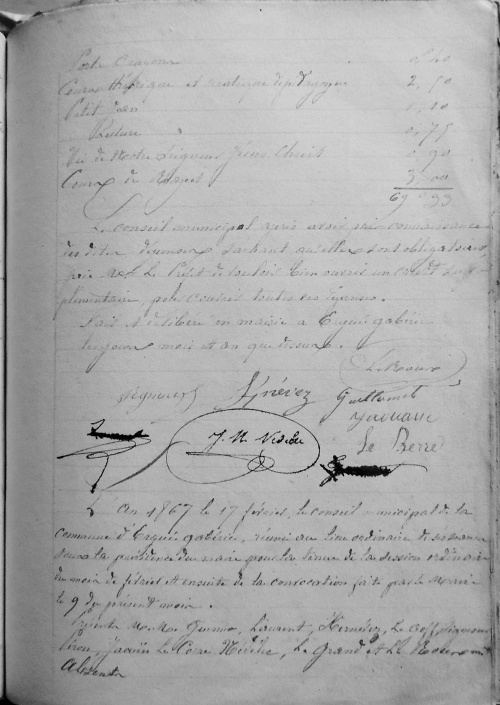 Porte Crayons 0,40
Cours théorique et pratique de pédagogie 2,50
Petit Jean
Reliure 0,75
Vie de Notre Seigneur Jésus Christ 0,90
Cours de
69 " 33
Le Conseil municipal, après avoir pris connaissance
des dites dépenses sachant qu'elles sont obligatoires
prie Mr Le Préfet de vouloir bien ouvrir un crédit sup-
plémentaire, pour couvrir toutes ces dépenses.
Fait et délibéré en mairie à Ergué gabéric
les jour mois et an que dessus.
Le Meur
Seigneur Kernévez Guillamet
J. M. Nédélec
Le Berre
L'an 1867 le 17 février, le conseil municipal de la
commune d'Ergué gabéric, réuni au lieu ordinaire de ses séances
sous la présidence du maire pour la tenue de la session ordinaire
du mois de février et ensuite de la convocation faite par le Maire
le 9 du présent mois.
Présents M. Mr Laurent, Kernévez, Le Goff, Seigneur
Le Corre Nédélec, Le Grand et Le
Absents